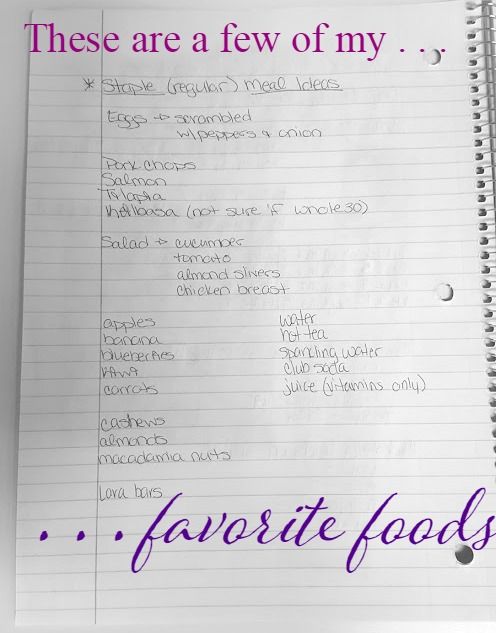 These are a few of my . . .
* Staple (regular) Meal Ideas
Eggs → scrambled
w/peppers & onion
Pork Chops
Salmon
Tilapia
Kielbasa (not sure if whole30)
Salad → cucumber
tomato
almond slivers
chicken breast
apples water
banana hot tea
blueberries sparkling water
kiwi club soda
carrots juice (vitamins only)
cashews
almonds
macadamia nuts
Lara bars
. . . favorite foods